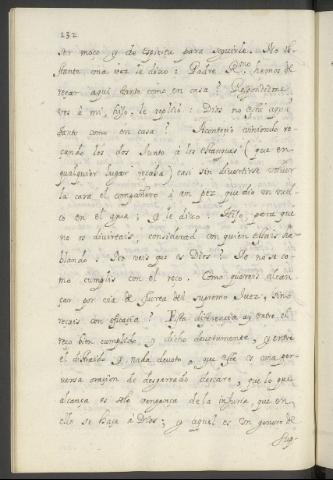 232
ser moço y do espiritu para seguirle. No ob-
stante una vez le dixo: Padre R.mo hemos de
reçar aqui tanto como en casa? Respondiome
à mi, hijo, le replicò: Dios no està aqui
tanto como en casa? Aconteciò viniendo re-
çando los dos junto à los estanques (que en
qualquier lugar reçaba) casi sin divertirse volviò
la cara el compañero à un pez que dio un vuel-
co en el agua; y le dixo: Hijo, para que
no os divirtais, considerad con quien estais ha-
blando: No veis que es Dios? No no se co-
mo cumplis con el reço. Como quereis alcan-
çar por via de fuerça del supremo Juez, sino
reçais con eficacia? Esta diferencia ay entre el
reço bien cumplido y dicho devotamente, y entre
el distraido y nada devoto, que este es una per-
versa oraçion de desgarrado descaro, que lo que
alcança es solo vengança de la injuria, que en
ello se haçe à Dios; y aquel es un genero de